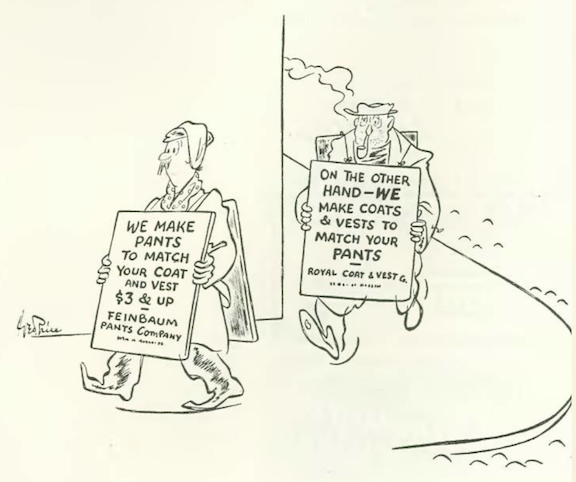 WE MAKE
PANTS
TO MATCH
YOUR COAT
AND VEST
$3 & UP
—
FEINBAUM
PANTS COMPANY
ON THE OTHER
HAND—WE
MAKE COATS
& VESTS TO
MATCH YOUR
PANTS
—
ROYAL COAT & VEST G.
Geo Price